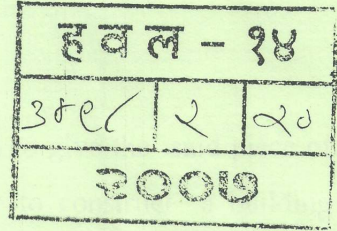 हवल - १४
३४९८ २ २०
२००७